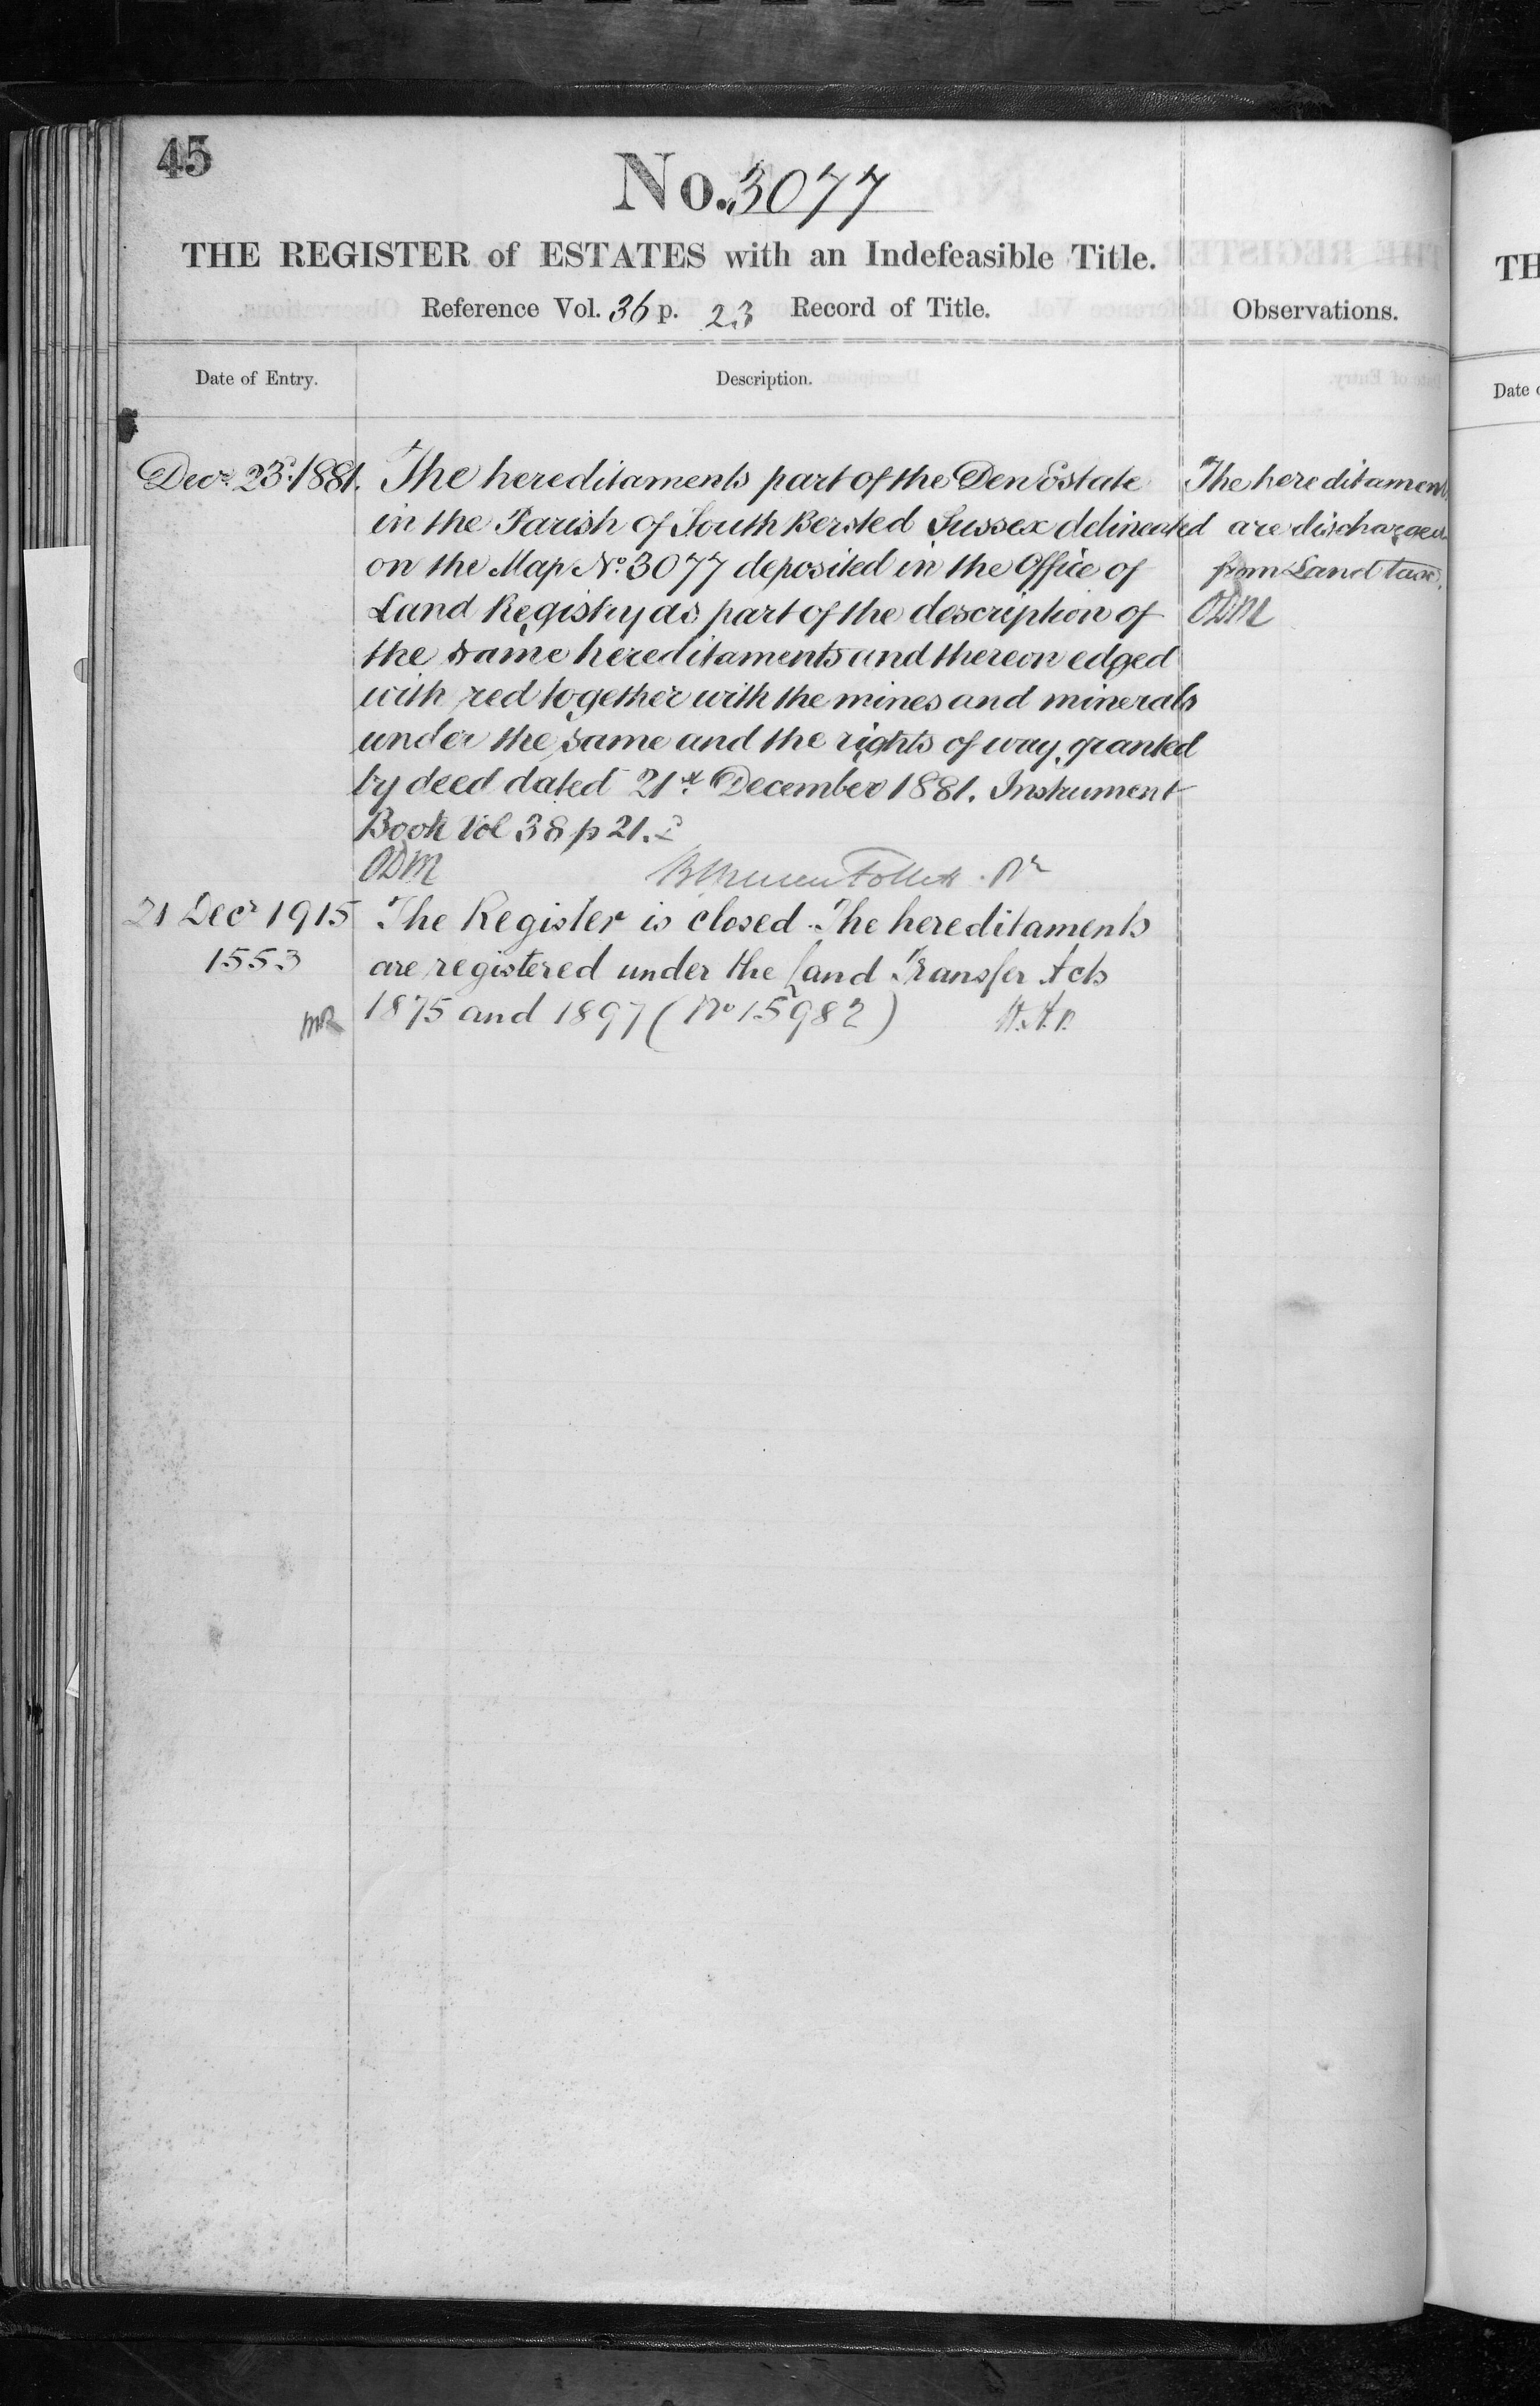 45
No. 3077
THE REGISTER of ESTATES with an Indefeasible Title.
Reference Vol. 36 p. 23 Record of Title.
Observations.
Date of Entry.
Description.
Decr. 23d. 1881.
The hereditaments part of the Den Estate
in the Parish of South Bersted Sussex delineated
on the Map No. 3077 deposited in the Office of
Land Registry as part of the description of
the same hereditaments and thereon edged
with red together with the mines and minerals
under the same and the rights of way granted
by deed dated 21st. December 1881. Instrument
Book Vol 38 p 21.
ODM
Follett
The hereditaments
are discharged
from Land tax.
ODM
21 Decr 1915
1553
MR
The Register is closed. The hereditaments
are registered under the Land Transfer Acts
1875 and 1897 (No 15982)
TH
Date